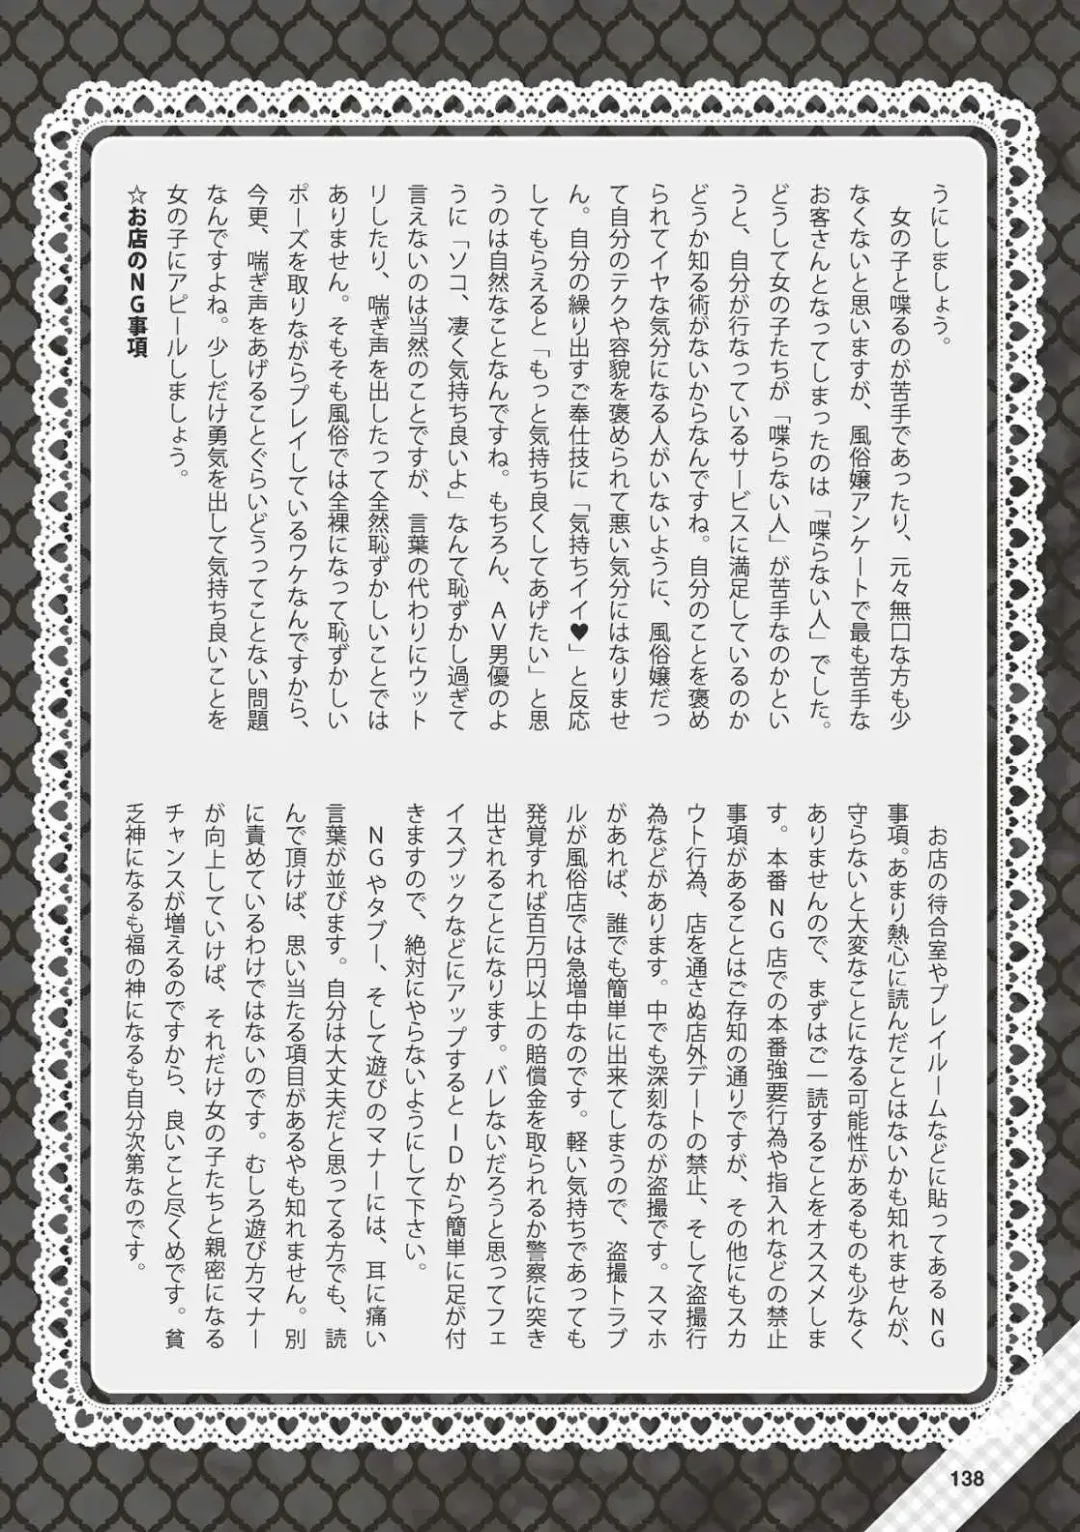 うにしましょう。
女の子と喋るのが苦手であったり、元々無口な方も少
なくないと思いますが、風俗嬢アンケートで最も苦手な
お客さんとなってしまったのは「喋らない人」でした。
どうして女の子たちが「喋らない人」が苦手なのかとい
うと、自分が行なっているサービスに満足しているのか
どうか知る術がないからなんですね。自分のことを褒め
られてイヤな気分になる人がいないように、風俗嬢だっ
て自分のテクや容貌を褒められて悪い気分にはなりませ
ん。自分の繰り出すご奉仕技に「気持ちイイ♥」と反応
してもらえると「もっと気持ち良くしてあげたい」と思
うのは自然なことなんですね。もちろん、AV男優のよ
うに「ソコ、凄く気持ち良いよ」なんて恥ずかし過ぎて
言えないのは当然のことですが、言葉の代わりにウット
リしたり、喘ぎ声を出したって全然恥ずかしいことでは
ありません。そもそも風俗では全裸になって恥ずかしい
ポーズを取りながらプレイしているワケなんですから、
今更、喘ぎ声をあげることぐらいどうってことない問題
なんですよね。少しだけ勇気を出して気持ち良いことを
女の子にアピールしましょう。
☆お店のNG事項
お店の待合室やプレイルームなどに貼ってあるNG
事項。あまり熱心に読んだことはないかも知れませんが、
守らないと大変なことになる可能性があるものも少なく
ありませんので、まずはご一読することをオススメしま
す。本番NG店での本番強要行為や指入れなどの禁止
事項があることはご存知の通りですが、その他にもスカ
ウト行為、店を通さぬ店外デートの禁止、そして盗撮行
為などがあります。中でも深刻なのが盗撮です。スマホ
があれば、誰でも簡単に出来てしまうので、盗撮トラブ
ルが風俗店では急増中なのです。軽い気持ちであっても
発覚すれば百万円以上の賠償金を取られるか警察に突き
出されることになります。バレないだろうと思ってフェ
イスブックなどにアップするとIDから簡単に足が付
きますので、絶対にやらないようにして下さい。
NGやタブー、そして遊びのマナーには、耳に痛い
言葉が並びます。自分は大丈夫だと思ってる方でも、読
んで頂けば、思い当たる項目があるやも知れません。別
に責めているわけではないのです。むしろ遊び方マナー
が向上していけば、それだけ女の子たちと親密になる
チャンスが増えるのですから、良いこと尽くめです。貧
乏神になるも福の神になるも自分次第なのです。
138